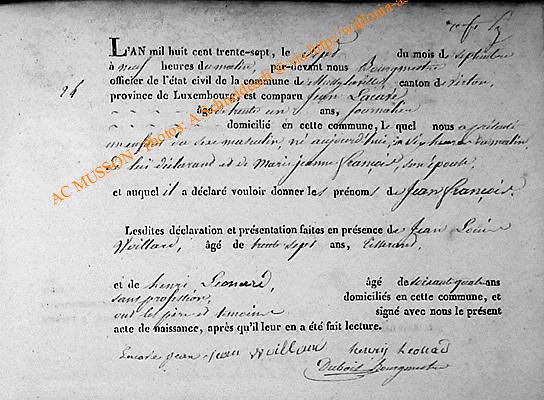 L'AN mil huit cent trente-sept, le sept du mois de Septembre
à neuf heures du matin, par-devant nous Bourgmestre
officier de l'état civil de la commune de canton de Virton,
24
province de Luxembourg, est comparu Jean Lacave
âgé de trente un ans, journalier
domicilié en cette commune, lequel nous a présenté
un enfant du sexe masculin né aujourd'hui, à six heures du matin
de lui déclarant et de Marie jeanne françois, son épouse,
et auquel il a déclaré vouloir donner les prénoms de Jean françois.
Lesdites déclaration et présentation faites en présence de Jean Louis
Woillard, âgé de trente sept ans, tisserand,
et de henri Leonard, âgé de soixante quatre ans
sans profession, domiciliés en cette commune, et
ont les père et temoins signé avec nous le présent
acte de naissance, après qu'il leur en a été fait lecture.
jean jean Woillard henry
Dubois Bourgmestre
AC MUSSON photos: